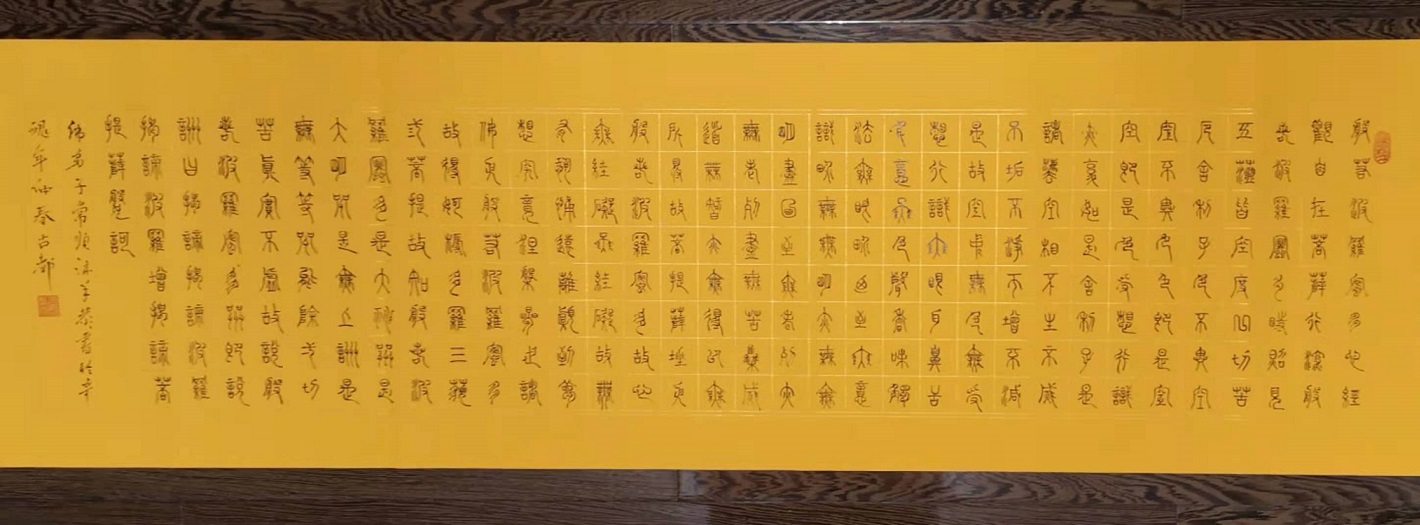 般若波羅蜜多心經
觀自在菩薩行深般
若波羅蜜多時照見
五蘊皆空度一切苦
厄舍利子色不異空
空不異色色即是空
空即是色受想行識
亦復如是舍利子是
諸法空相不生不滅
不垢不淨不增不減
是故空中無色無受
想行識無眼耳鼻舌
身意無色聲香味觸
法無眼界乃至無意
識界無無明亦無無
明盡乃至無老死亦
無老死盡無苦集滅
道無智亦無得以無
所得故菩提薩埵依
般若波羅蜜多故心
無罣礙無罣礙故無
有恐怖遠離顛倒夢
想究竟涅槃三世諸
佛依般若波羅蜜多
故得阿耨多羅三藐
三菩提故知般若波
羅蜜多是大神咒是
大明咒是無上咒是
無等等咒能除一切
苦真實不虛故說般
若波羅蜜多咒即說
咒曰揭諦揭諦波羅
揭諦波羅僧揭諦菩
提薩婆訶
佛弟子常順沐手恭書於辛
年仲春古都